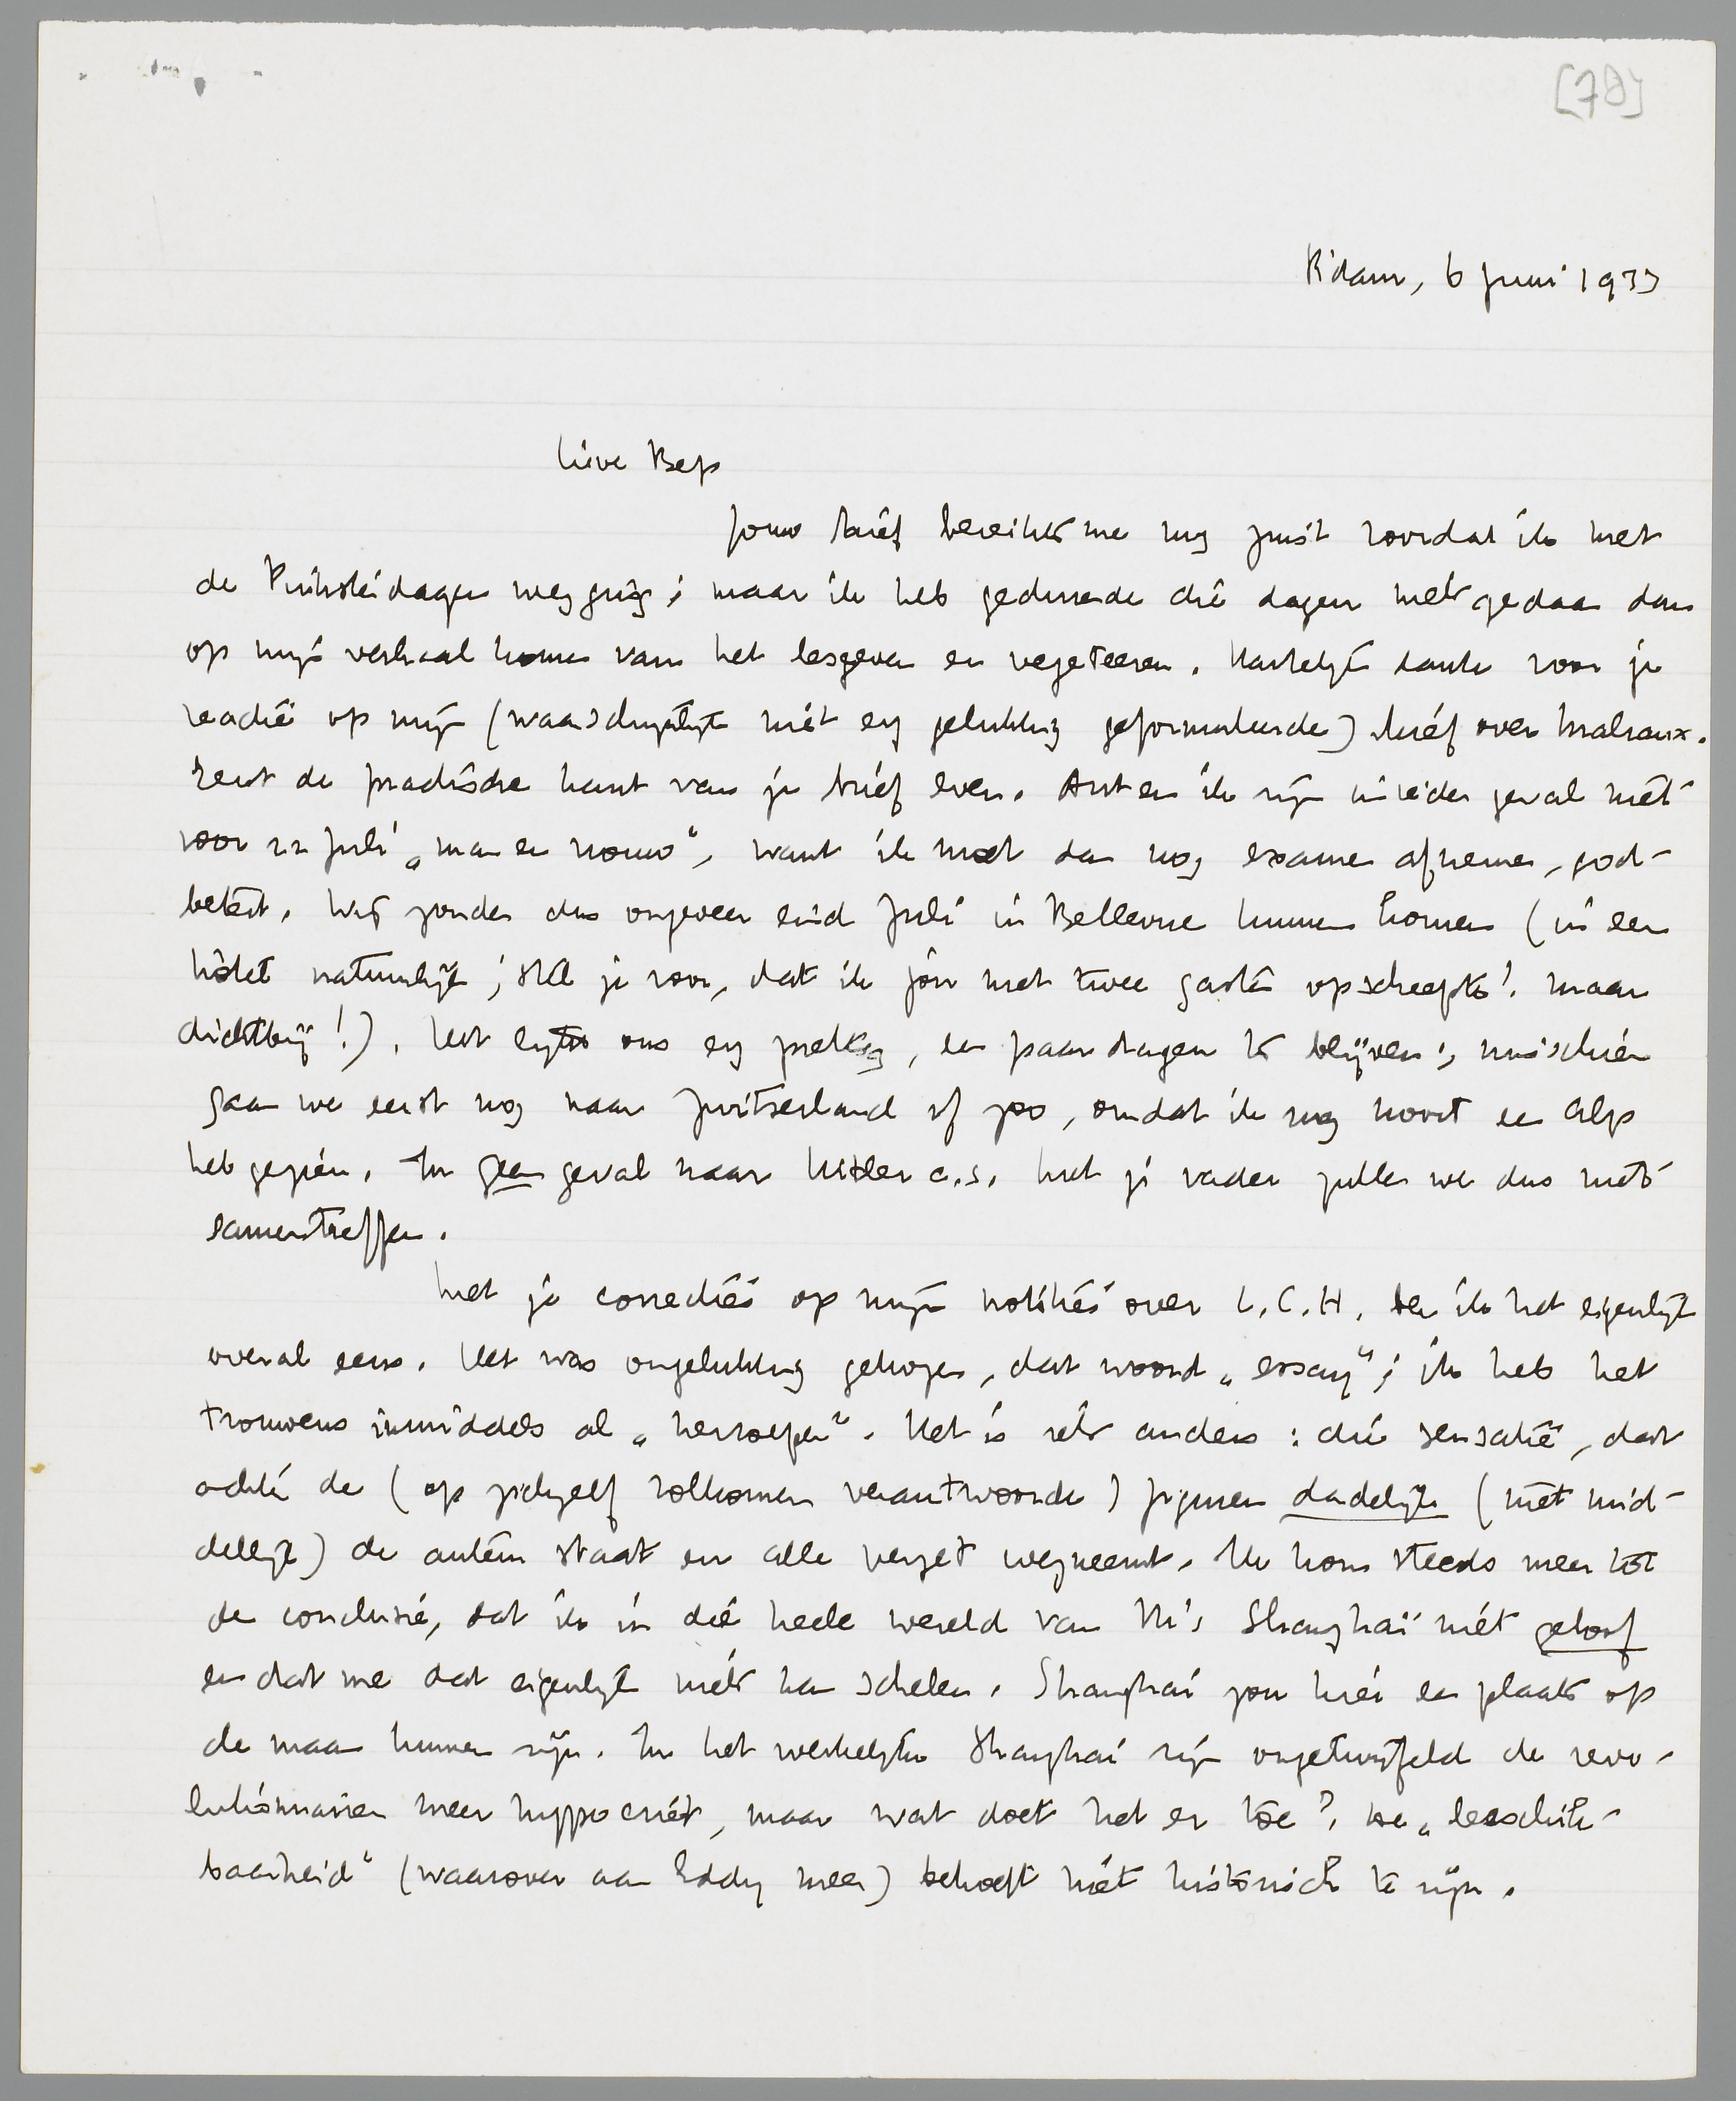 [78]
R'dam, 6 Juni 1933
Lieve Bep
Jouw brief bereikte me nog juist voordat ik met
de Pinksterdagen wegging; maar ik heb gedurende die dagen niets gedaan dan
op mijn verhaal komen van het lesgeven en vegeteeren. Hartelijk dank voor je
reactie op mijn (waarschijnlijk niet erg gelukkig geformuleerde) brief over Malraux.
Eerst de practische kant van je brief even. Ant en ik zijn in ieder geval niet
voor 22 Juli „man en vrouw”, want ik moet dan nog examen afnemen, god-
betert. Wij zouden dus ongeveer eind Juli in Bellevue kunnen komen (in een
hôtel natuurlijk; stel je voor, dat ik jou met twee gasten opscheepte! maar
dichtbij!). Het lijkt ons erg prettig, een paar dagen te blijven; misschien
gaan we eerst nog naar Zwitserland of zoo, omdat ik nog nooit een Alp
heb gezien. In geen geval naar Hitler c.s. Met je vader zullen we dus niet
samentreffen.
Met je correcties op mijn notities over L.C.H. ben ik het eigenlijk
overal eens. Het was ongelukkig gekozen, dat woord „essay”; ik heb het
trouwens inmiddels al „herroepen”. Het is iets anders: die sensatie, dat
achter de (op zichzelf volkomen verantwoorde) figuren dadelijk (niet mid-
dellijk) de auteur staat en alle verzet wegneemt. Ik kom steeds meer tot
de conclusie, dat ik in die heele wereld van M's Shanghaï niet geloof
en dat me dat eigenlijk niets kan schelen. Shanghai zou hier een plaats op
de maan kunnen zijn. In het werkelijke Shanghai zijn ongetwijfeld de revo-
lutionnairen meer hypocriet, maar wat doet het er toe? De „beschik-
baarheid” (waarover aan Eddy meer) behoeft niet historisch te zijn.